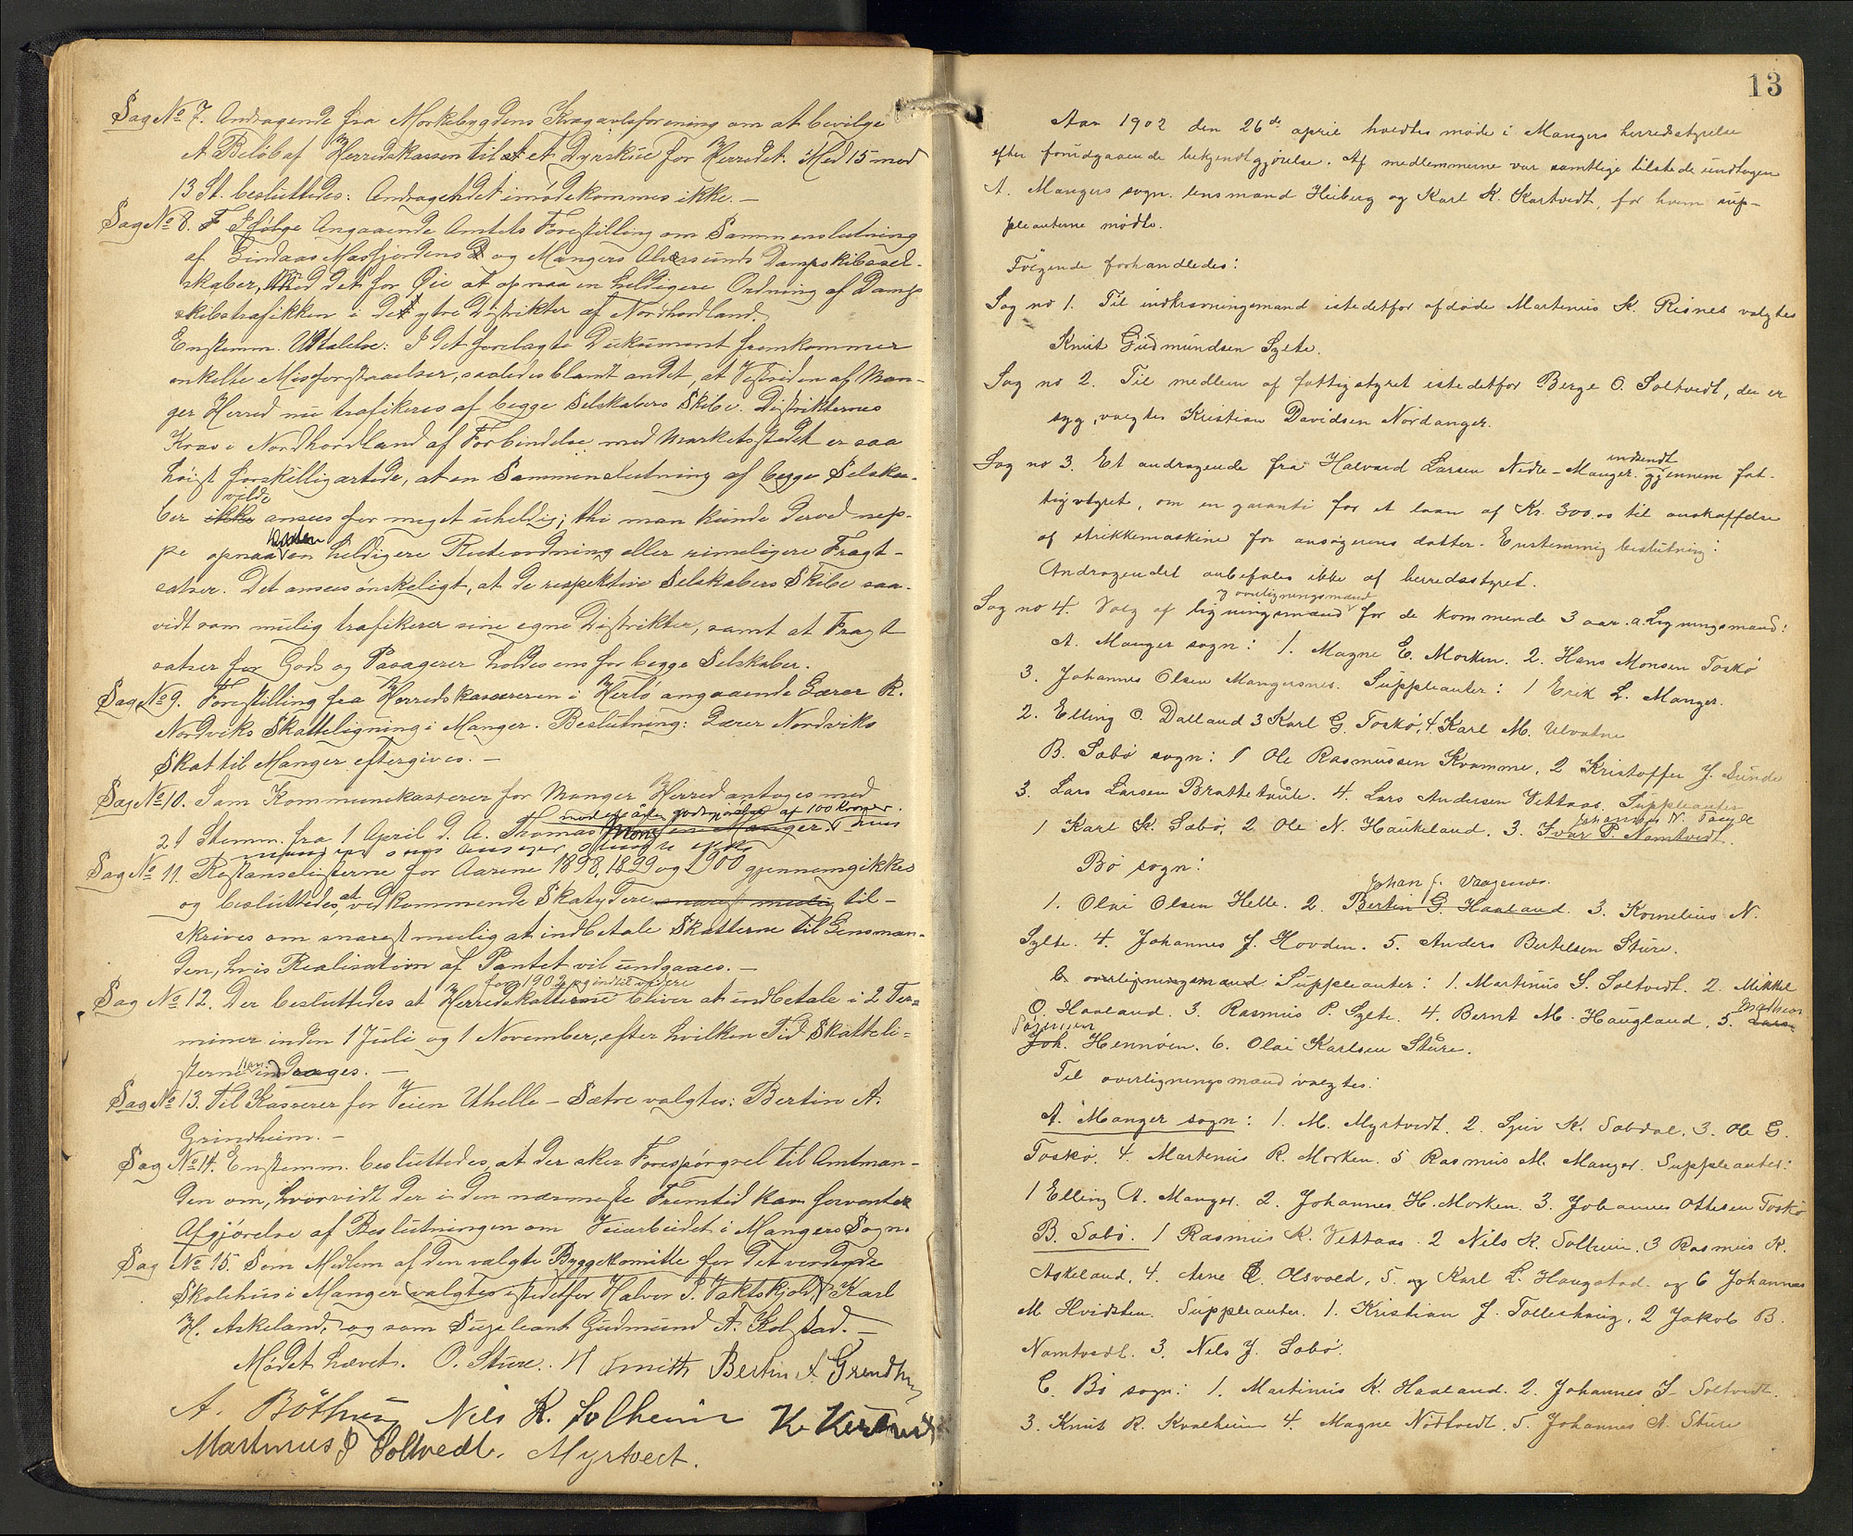 Sag No 7. Andragende fra Morkebygdens Kvægavlsforening om at bevilge
et Beløb af Herredskassen til et Dyrskue for Herredet. Med 15 mod
13 St. besluttedes: Andragendet imødekommes ikke. –
Sag No 8. Angaaende Amtets Forestilling om Sammenslutning
af Lindaas Masfjordens og Mangers Alversunds Dampskibssel-
skaber, med det for Øie at opnaa en heldigere Ordning af Damp
skibstrafikken i de ytre Distrikter af Nordhordland.
Enstemm. Udtalelse: I det forelagte Dukument fremkommer
enkelte Misforstaaelser, saaledes blamt andet, at Vestsiden af Man-
ger Herred nu trafikeres af begge Selskabers Skibe. Distrikternes
Krav i Nordhordland af Forbindelse med Markedsstedet er saa
høist forskilligartede, at en Sammenslutning af begge Selska-
ber ikke vilde ansees for meget uheldig; thi man kunde derved nep-
pe opnaa hverken en heldigere Ruteordning eller rimeligere Fragt-
satser. Det ansees ønskeligt, at de respektive Selskabers Skibe saa-
vidt som mulig trafikerer sine egne Distrikter, samt at Fragt
satser for Gods og Pasagerer holdes ens for begge Selskaber.
Sag No 9. Forestilling fra Herredskassereren i Herlø angaaende Lærer R.
Nordviks Skatteligning i Manger. Beslutning: Lærer Nordviks
Skat til Manger eftergives. –
Sag No 10. Som Kommunekasserer for Manger Herred antages med
mod en årlig godtgjørelse af 100 kroner.
21 Stemm. fra 1 April d. A. Thomas Monsen Manger
Sag No 11. Restanselisterne for Aarene 1898, 1899 og 1900 gjennemgikkes
og besluttedes, at vedkommende Skatydere snarest muelig til-
skrives om snarest muelig at indbetale Skatterne til Lensman-
den, hvis Realisation af Pantet vil undgaaes. –
for 1902 og indtil videre
Sag No 12. Der besluttedes at Herredskatterne bliver at indbetale i 2 Ter-
miner inden 1 Juli og 1 November, efter hvilken Tid Skatteli-
sterne inddrages. –
Sag No 13. Til Kasserer for Veien Uthelle – Sætre valgtes: Bertin A.
Grindheim. –
Sag No 14. Enstemm. besluttedes, at der sker Forespørgsel til Amtman-
den om, hvorvidt der i den nærmeste Fremtid kan forventes
Afgjørelse af Beslutningen om Veiarbeidet i Mangers Sogn.
Sag No 15. Som Medlem af den valgte Byggekomitte for det vordende
Skolehus i Manger valgtes istedetfor Halvor P. Vaktskjold, Karl
H. Askeland, og som Supleant Gudmund A. Kolstad. –
Mødet hævet. O. Sture. N Smith Bertin A. Grindheim
A. Bøthun Nils K. Solheim K.
Martinus J Soltvedt. Myrtvedt.
13
Aar 1902 den 26de april holdtes møde i Mangers herredsstyrelse
efter forudgaaende bekjendtgjørelse. Af medlemmerne var samtlige tilstede undtagen
A. Mangers sogn. lensmand Heiberg og Karl K. Kartvedt, for hvem sup-
pleanterne mødte.
Følgende forhandledes:
Sag no 1. Til indkrævningsmand istedetfor afdøde Martinus K. Risnes valgtes
Knut Gudmundsen Sylte.
Sag no 2. Til medlem af fattigstyret istedetfor Berge O. Soltvedt, der er
syg, valgtes Kristian Davidsen Nordanger.
Sag no 3. Et andragende fra Halvard Larsen Nedre-Manger indsendt gjennem fat-
tigstyret, om en garanti for et laan af Kr. 300.00 til anskaffelse
af strikkemaskine for ansøgerens datter. Enstemmig beslutning:
Andragendet anbefales ikke af herredsstyret.
og overligningsmænd
Sag no 4. Valg af ligningsmænd for de kommende 3 aar. a. Ligningsmænd:
A. Manger sogn: 1. Magne E. Morken. 2. Hans Monsen Toskø
3. Johannes Olsen Mangersnes. Suppleanter: 1 Erik L. Manger.
2. Elling O. Dalland 3 Karl G. Toskø, 4. Karl M. Ulvatne
B. Sæbø sogn: 1 Ole Rasmussen Kvamme, 2 Kristoffer J. Sunde
3. Lars Larsen Brattetaule. 4. Lars Andersen Vettaas. Suppleanter
1 Karl K. Sæbø, 2 Ole N. Haukeland. 3. Ivar P. Namtvedt.
Johannes N. Taule
Bø sogn:
Johan J. Vaagenes.
1. Olai Olsen Helle. 2. Bertin G. Haaland. 3. Kornelius N.
Sylte. 4. Johannes J. Hovden. 5. Anders Bertelsen Sture.
b. overligningsmænd Suppleanter: 1. Martinus S. Soltvedt. 2. Mikkel
O. Haaland. 3. Rasmus P. Sylte. 4. Bernt M. Haugland. 5. Lars
Joh. Hennøen. 6. Olai Karlsen Sture.
Til overligningsmænd valgtes:
A. Manger sogn: 1. M. Myrtvedt. 2. Sjur K. Sæbdal. 3. Ole G.
Toskø. 4. Martinus R. Morken. 5 Rasmus M. Manger. Suppleanter:
1 Elling A. Manger. 2. Johannes H. Morken. 3. Johannes Ottesen Toskø
B. Sæbø. 1 Rasmus K. Vettaas. 2 Nils K. Solheim. 3 Rasmus K.
Askeland. 4. Arne E. Olsvold, 5. og Karl L. Haugstad. og 6 Johannes
M Hvidsten. Suppleanter. 1. Kristian J. Tolleshaug. 2 Jakob B.
Namtvedt. 3. Nils J. Sæbø.
C. Bø sogn: 1. Martinus K. Haaland. 2. Johannes J. Soltvedt.
3. Knut R. Kvalheim 4. Magne Nøttvedt. 5. Johannes A. Sture